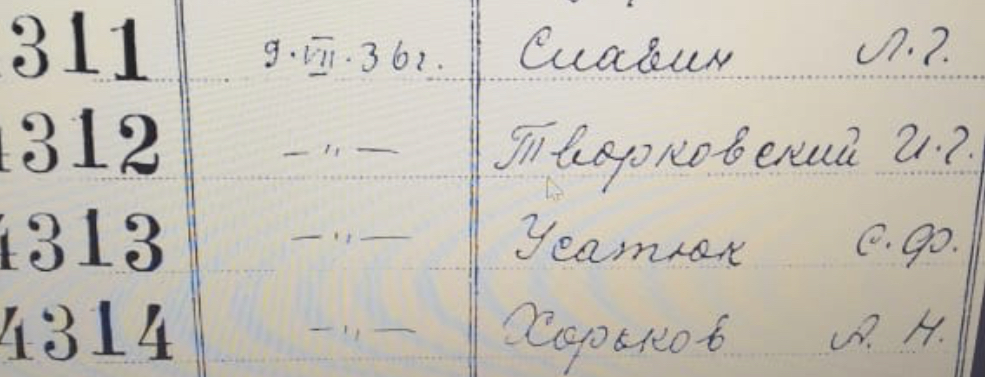 4311 9.VII.36г. Славин Л.Г.
4312 —"— Творковский И.Г.
4313 —"— Усатюк С.Ф.
4314 —"— Хорьков А.Н.